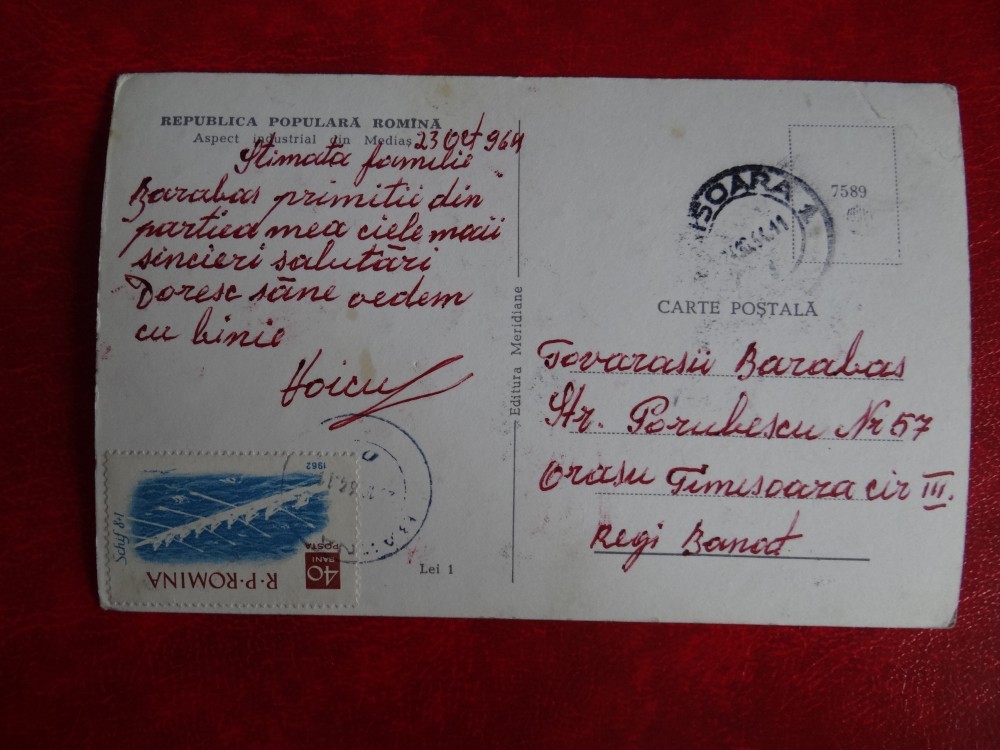 REPUBLICA POPULARĂ ROMÎNĂ
Aspect industrial din Mediaș
23 oct 964
Stimata familie
Barabas primitii din
partiea mea ciele maii
sincieri salutări
Doresc sāne vedem
cu binie
Voicu
1962
Schif 8+1
40
BANI
POSTA
R·P·ROMINA
Lei 1
Editura Meridiane
IȘOARA 1
7589
CARTE POȘTALĂ
Tovarasii Barabas
Str. Porubescu Nr 57
Orasu Timisoara cir III.
Regi Banat